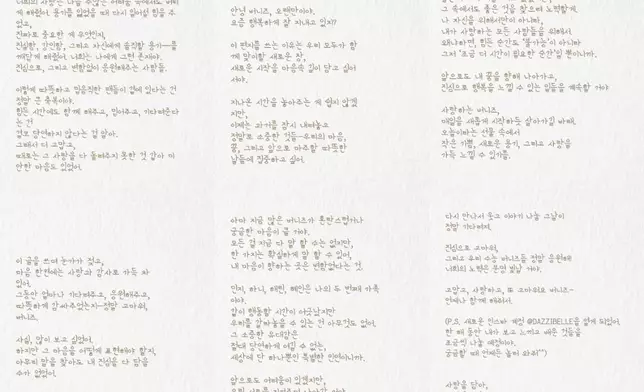 너희의 사랑은 나를 수많은 어려움 속에서도 버티게 해줬어. 용기를 잃었을 때 다시 일어설 힘을 주었고,
진짜로 중요한 게 무엇인지,
진심함, 강인함, 그리고 자신에게 솔직할 용기—를
깨닫게 해줬어. 너희는 나에게 그런 존재야.
진심으로, 그리고 변함없이 응원해주는 사람들.
이렇게 따뜻하고 믿음직한 팬들이 곁에 있다는 건
정말 큰 축복이야.
힘든 시간에도 함께 해주고, 믿어주고, 기다려준다는 건
결코 당연하지 않다는 걸 알아.
그래서 더 고맙고,
때로는 그 사랑을 다 돌려주지 못한 것 같아 미안한 마음도 있었어.
이 글을 쓰며 눈가가 젖고,
마음 한켠에는 사랑과 감사로 가득 차
있어.
그동안 얼마나 기다려주고, 응원해주고,
따뜻하게 감싸주었는지—정말 고마워,
버니즈.
사실, 많이 보고 싶었어.
하지만 그 마음을 어떻게 표현해야 할지,
아무리 말을 찾아도 내 진심을 다 담을
수가 없었어.
안녕 버니즈, 오랜만이야.
요즘 행복하게 잘 지내고 있지?
이 편지를 쓰는 이유는 우리 모두가 함
께 맞이할 새로운 장,
새로운 시작을 마음속 깊이 담고 싶어
서야.
지나온 시간을 놓아주는 게 쉽지 않겠
지만,
이제는 과거를 잠시 내려놓고
정말로 소중한 것들—우리의 마음,
꿈, 그리고 앞으로 마주할 따뜻한
날들에 집중하고 싶어.
아마 지금 많은 버니즈가 혼란스럽거나
궁금한 마음이 클 거야.
모든 걸 지금 다 말할 수는 없지만,
한 가지는 확실하게 말할 수 있어,
내 마음이 향하는 곳은 변함없다는 것.
민지, 하니, 해린, 혜인은 나의 두 번째 가족
이야.
같이 행동할 시간이 어긋났지만
우리를 갈라놓을 수 있는 건 아무것도 없어.
그 소중한 유대감은
절대 당연하게 여길 수 없는,
세상에 단 하나뿐인 특별한 인연이니까.
앞으로도 어려움이 있겠지만,
그 속에서도 좋은 것을 찾으려 노력할게.
나 자신을 위해서만이 아니라,
내가 사랑하는 모든 사람들을 위해서.
왜냐하면, 힘든 순간도 '불가능'이 아니라
그저 '조금 더 시간이 필요한 순간'일 뿐이니까.
앞으로도 내 꿈을 향해 나아가고,
진심으로 행복을 느낄 수 있는 일들을 계속할 거야.
사랑하는 버니즈,
매일을 새롭게 시작하는 날이기를 바래,
오늘이라는 선물 속에서
작은 기쁨, 새로운 용기, 그리고 사랑을
가득 느낄 수 있기를.
다시 만나서 웃고 이야기 나눌 그날이
정말 기다려져.
진심으로 고마워,
그리고 우리 수능 버니즈들 정말 응원해
너희의 노력은 분명 빛날 거야.
고맙고, 사랑하고, 또 고마워요 버니즈—
언제나 함께 해줘서.
(P.S. 새로운 인스타 계정 @DAZZIBELLE을 열게 되었어.
한 해 동안 내가 보고 느끼고 배운 것들을
조금씩 나눌 예정이야.
궁금할 때 언제든 놀러 와줘^^)
사랑을 담아,